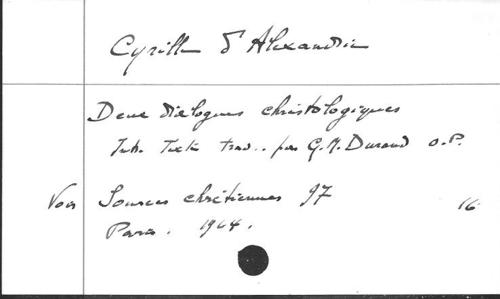 Cyrille d'Alexandrie
Deux dialogues christologiques
Intr. Texte trad. par G.M. Durand O.P.
Voir Sources chrétiennes 97 16
Paris. 1964.